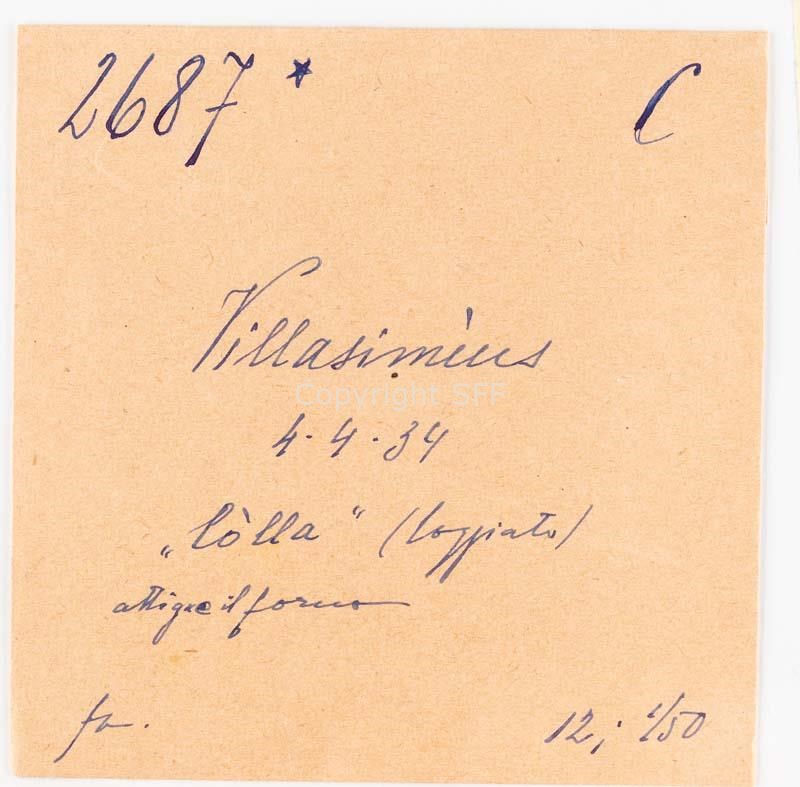 2687 * C
Villasimìus
Copyright SFF
4.4.34
„lòlla" (loggiato)
il forno
fa.
12; 1/50